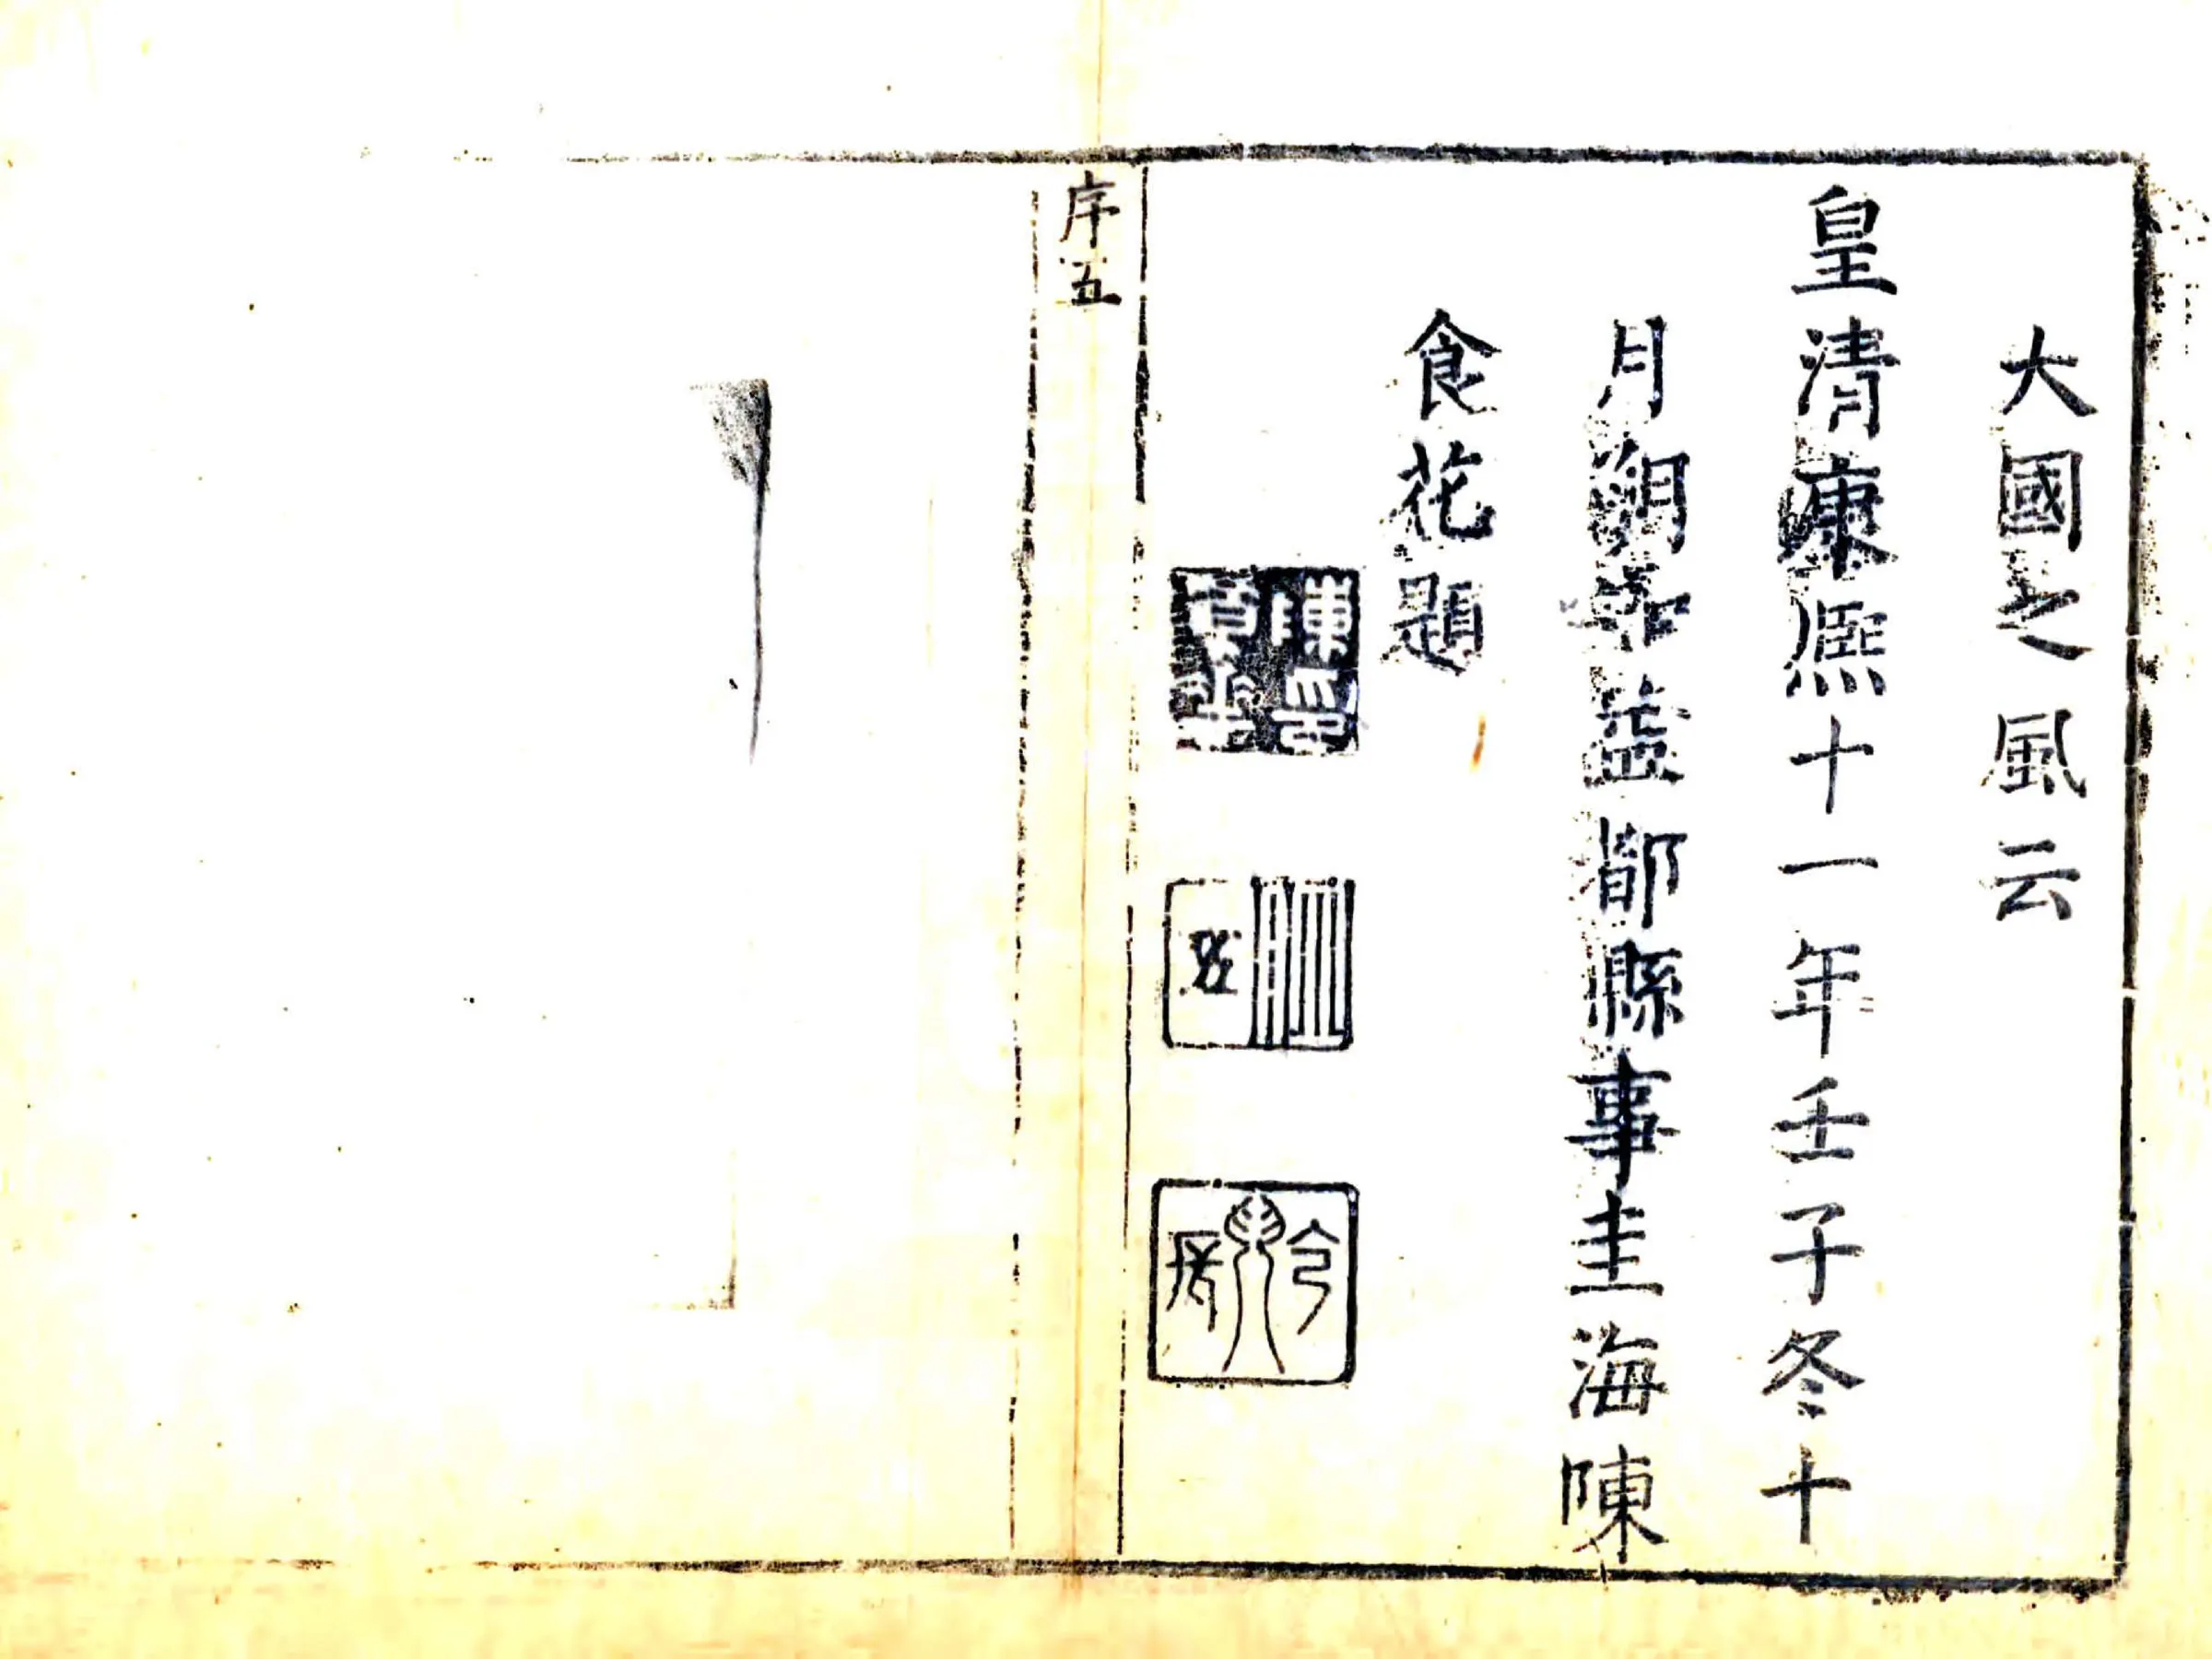 大國之風云
皇清康熙十一年壬子冬十
月朔知益都縣事圭海陳
食花題
陳食花印
序五